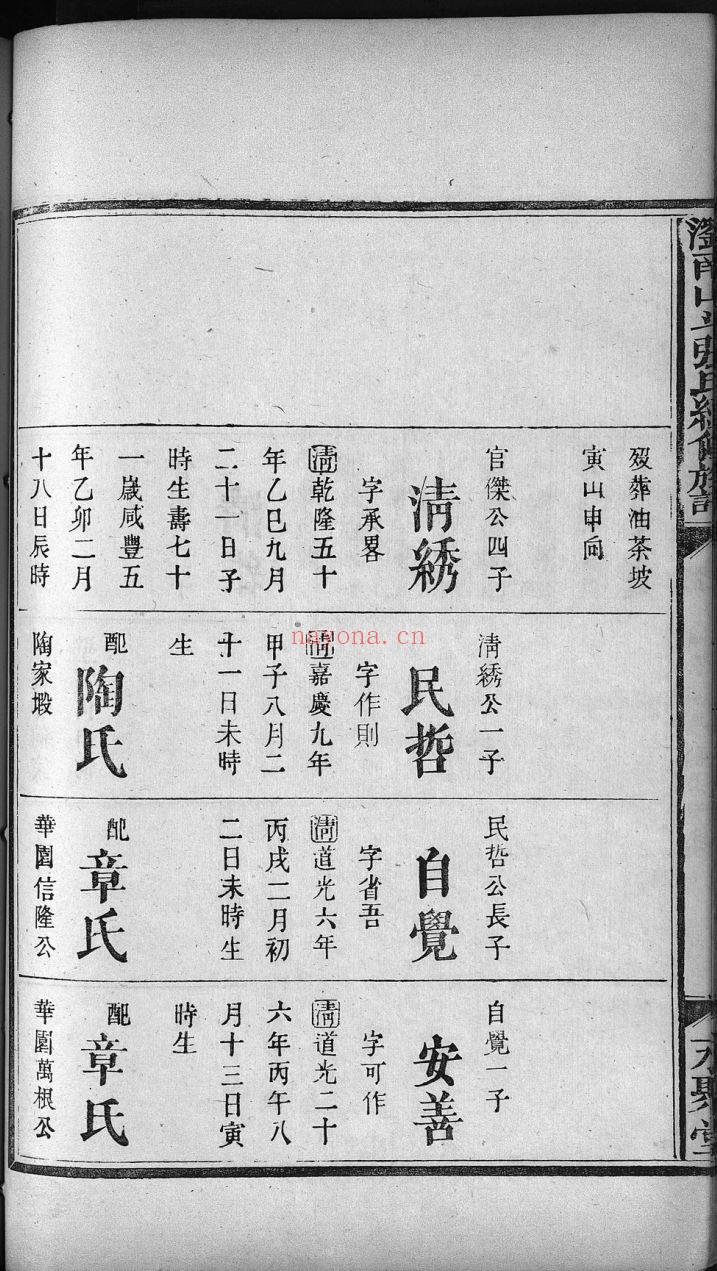 歿葬油茶坡
寅山申向
官傑公四子
清綉
字承畧
清乾隆五十
年乙巳九月
二十一日子
時生壽七十
一歲咸豐五
年乙卯二月
十八日辰時
清綉公一子
民哲
字作則
清嘉慶九年
甲子八月二
十一日未時
生
配
陶氏
陶家塅
民哲公長子
自覺
字省吾
清道光六年
丙戌二月初
二日未時生
配
章氏
華園信隆公
自覺一子
安善
字可作
清道光二十
六年丙午八
月十三日寅
時生
配
章氏
華園萬根公
nayona.cn